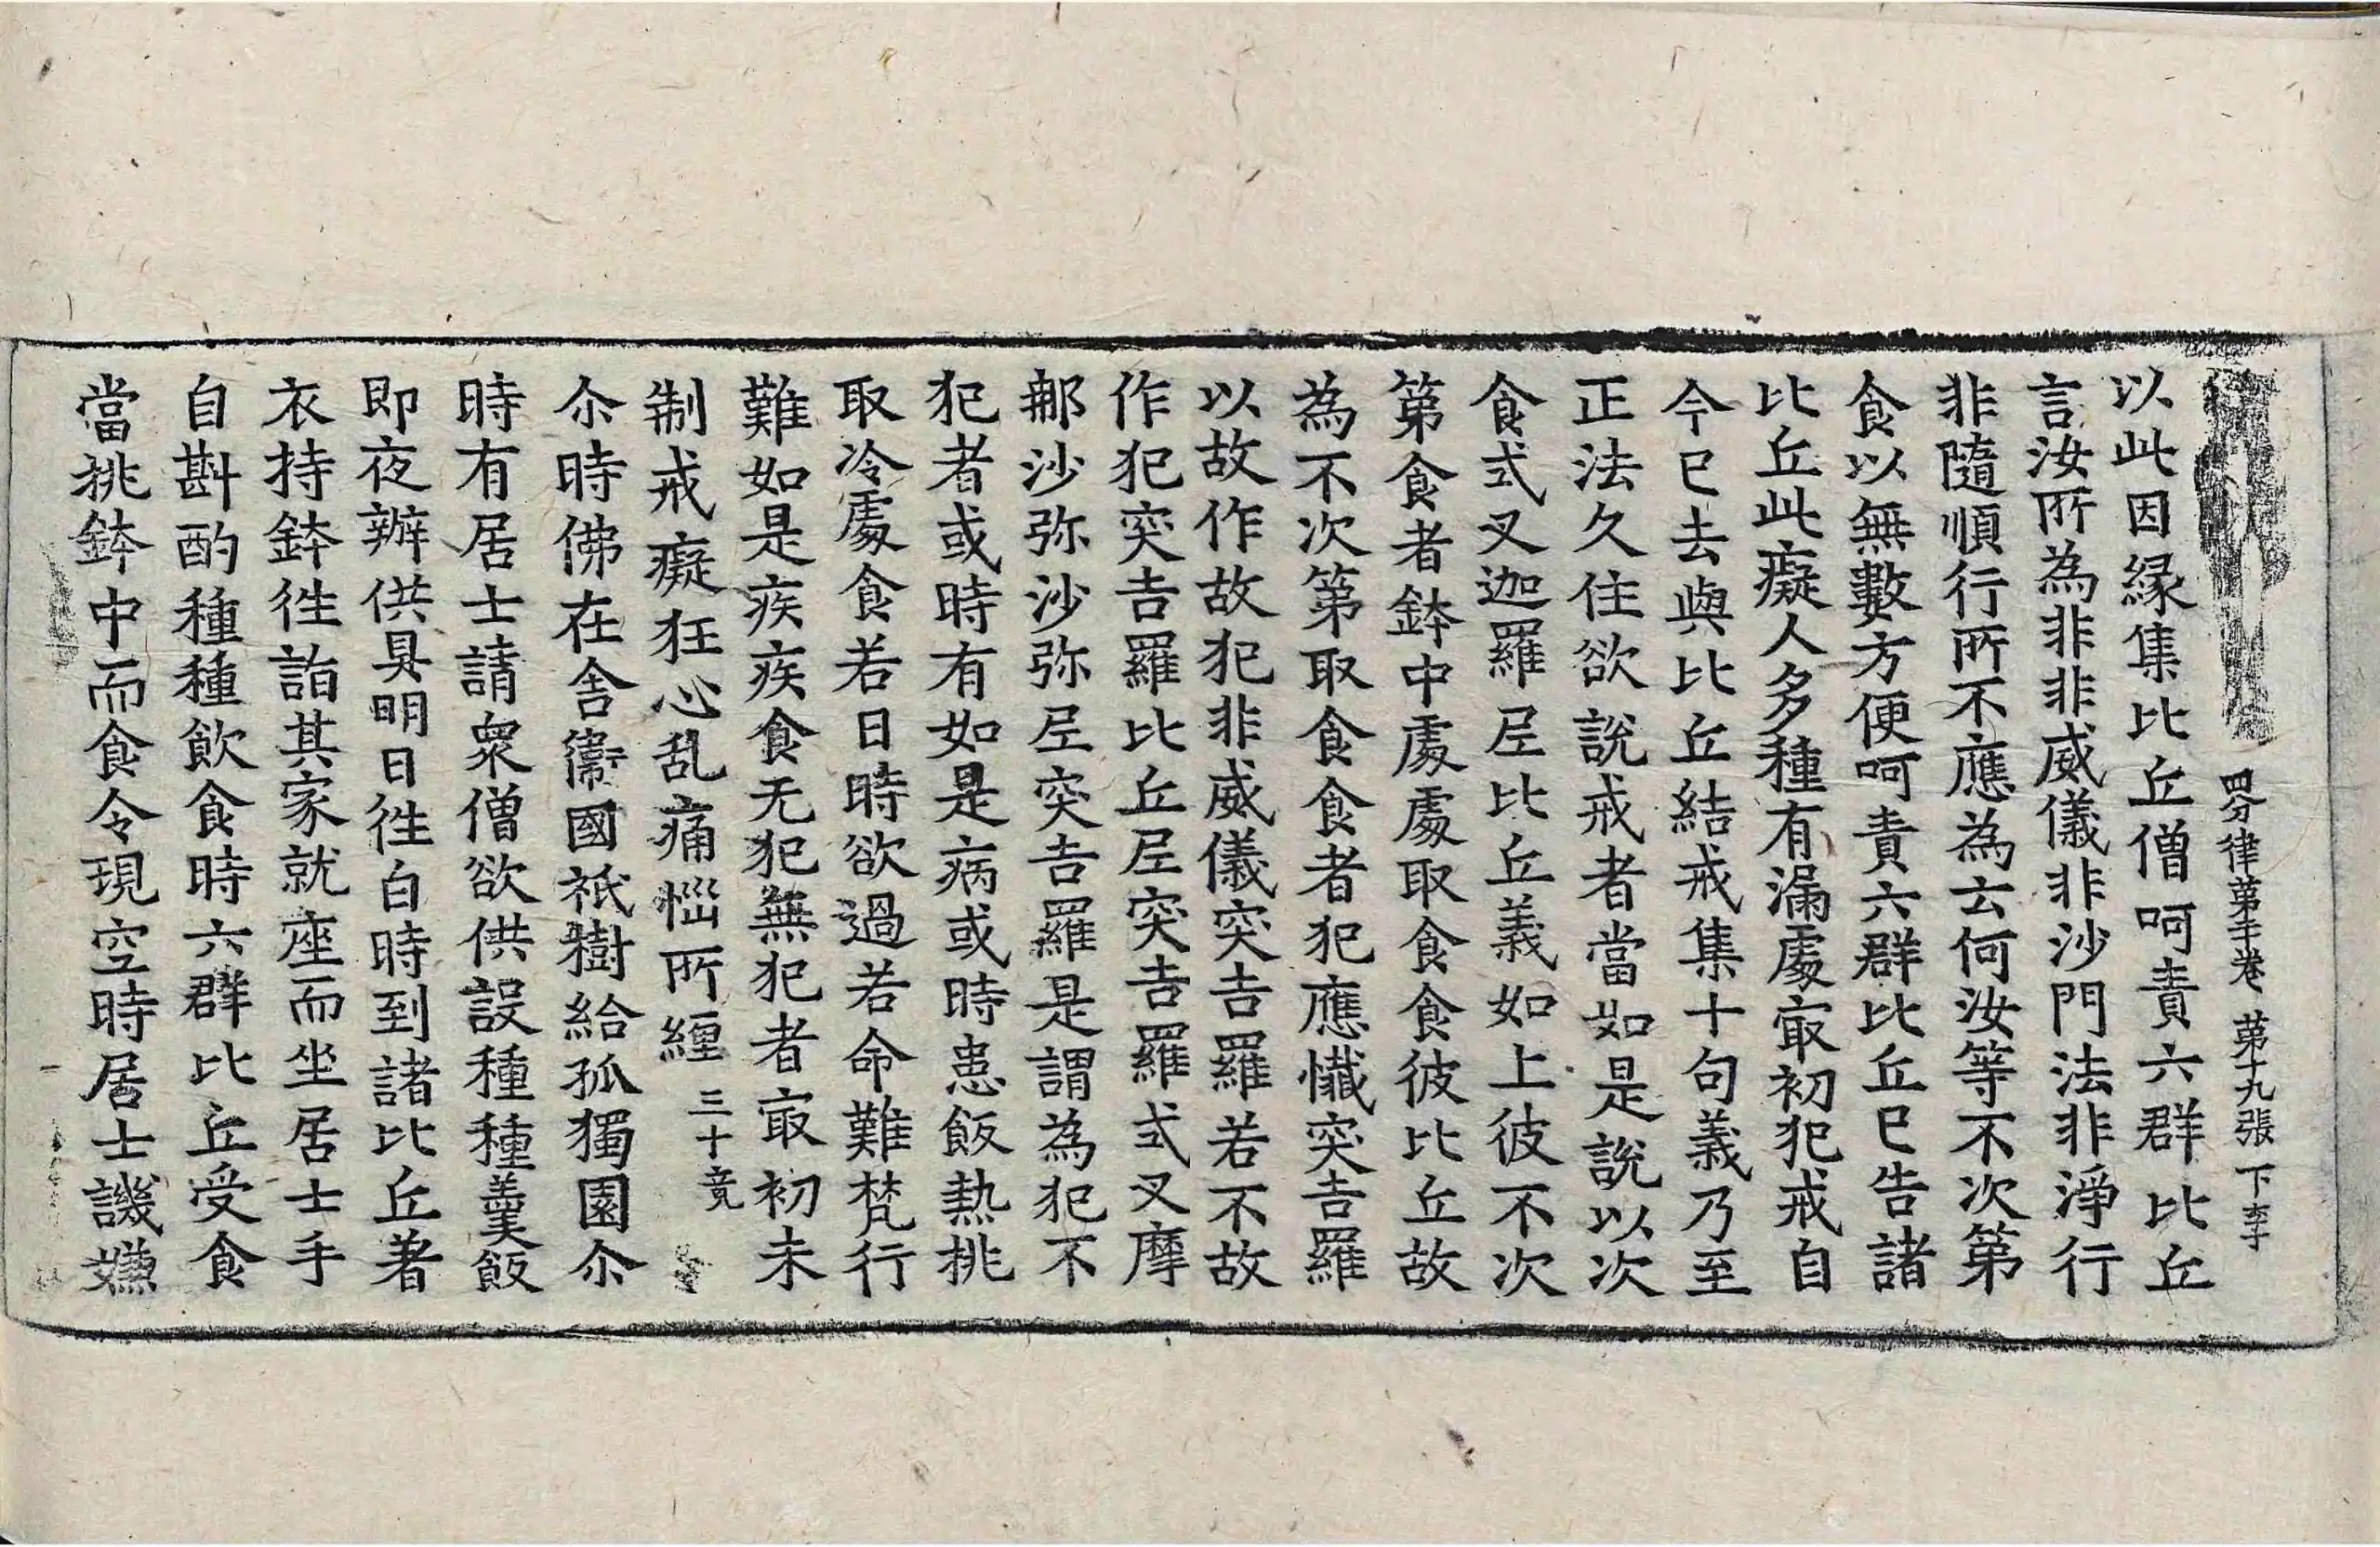 四分律第二十卷 第十九張 下李
以此因緣集比丘僧呵責六群比丘
言汝所為非非威儀非沙門法非淨行
非隨順行所不應為云何汝等不次第
食以無數方便呵責六群比丘已告諸
比丘此癡人多種有漏處冣初犯戒自
今已去與比丘結戒集十句義乃至
正法久住欲說戒者當如是說以次
食式叉迦羅尼比丘義如上彼不次
第食者鉢中處處取食食彼比丘故
為不次第取食食者犯應懺突吉羅
以故作故犯非威儀突吉羅若不故
作犯突吉羅比丘尼突吉羅式叉摩
那沙弥沙弥尼突吉羅是謂為犯不
犯者或時有如是病或時患飯熱挑
取冷處食若日時欲過若命難梵行
難如是疾疾食无犯無犯者冣初未
制戒癡狂心乱痛惱所纏 三十竟
尒時佛在舍衞國祇樹給孤獨園尒
時有居士請衆僧欲供設種種羹飯
即夜辦供具明日徃白時到諸比丘著
衣持鉢徃詣其家就座而坐居士手
自斟酌種種飲食時六群比丘受食
當挑鉢中而食令現空時居士譏嫌